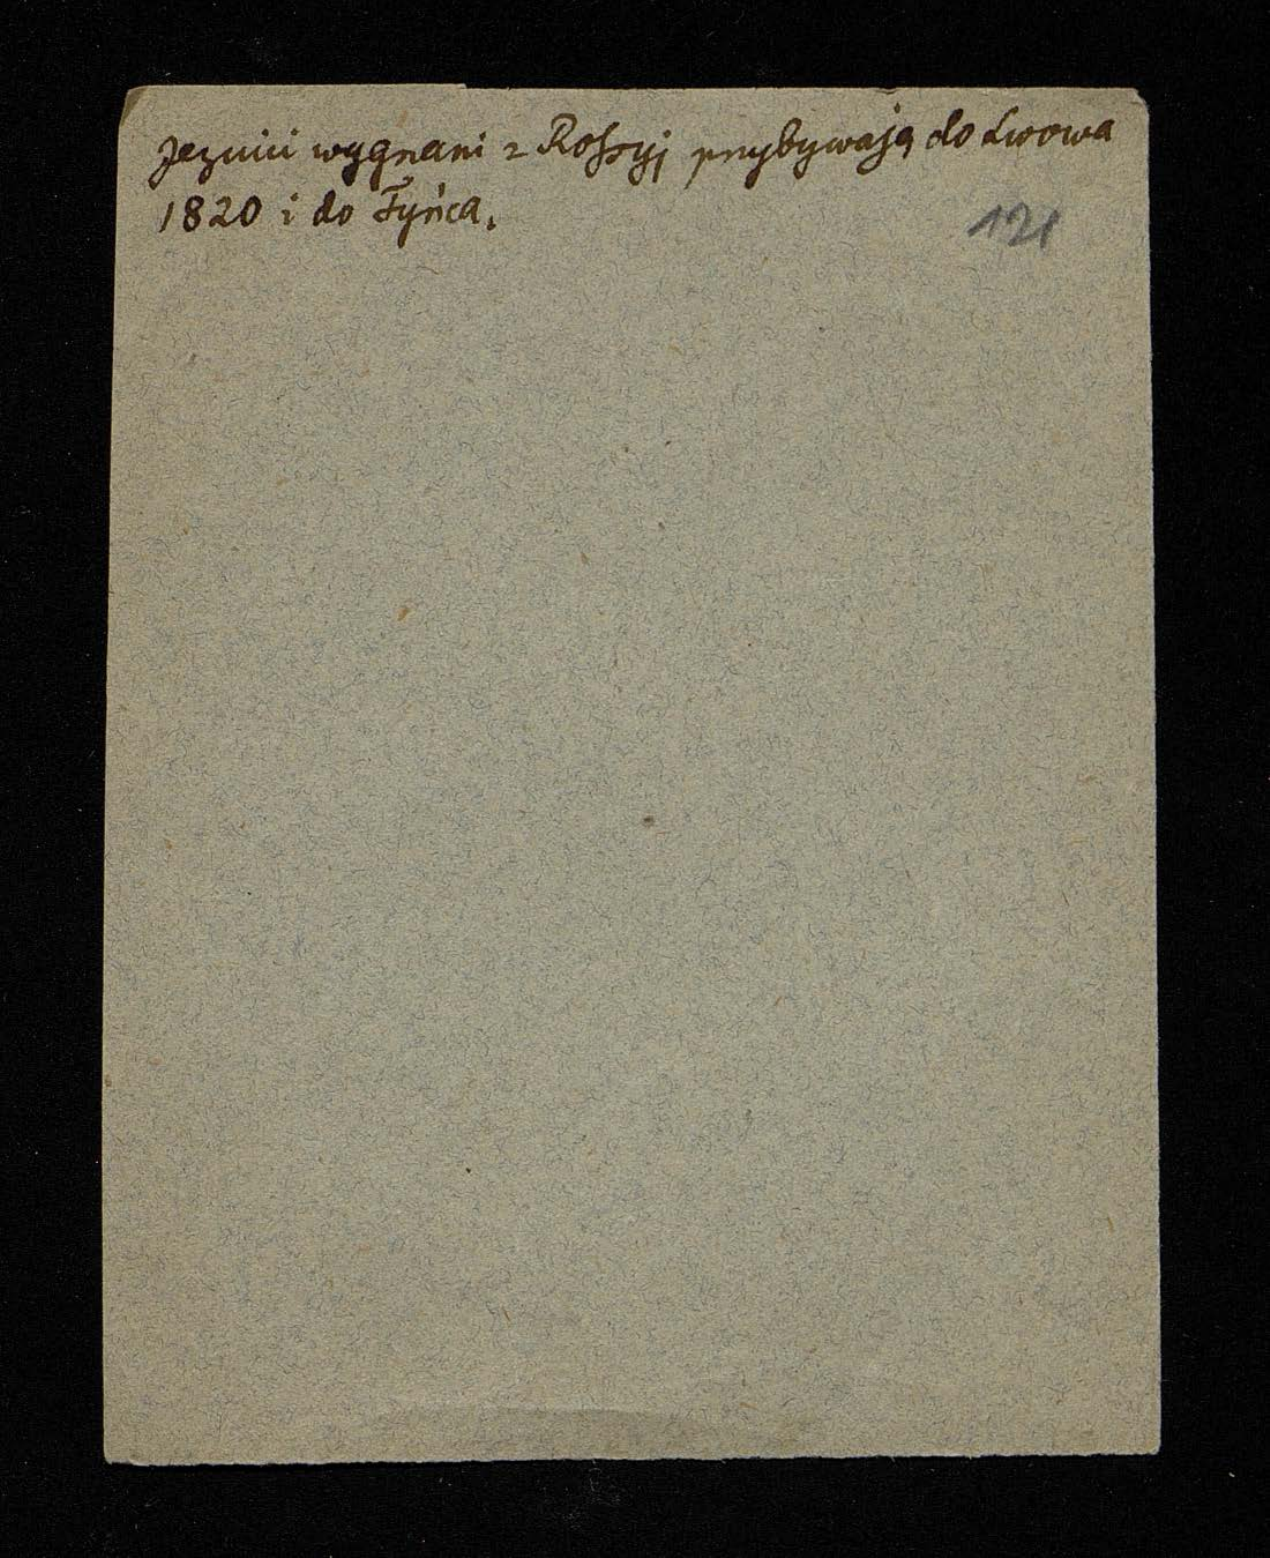 Jezuici wygnani z Rossyj przybywają do Lwowa
1820 i do Tyńca.
121